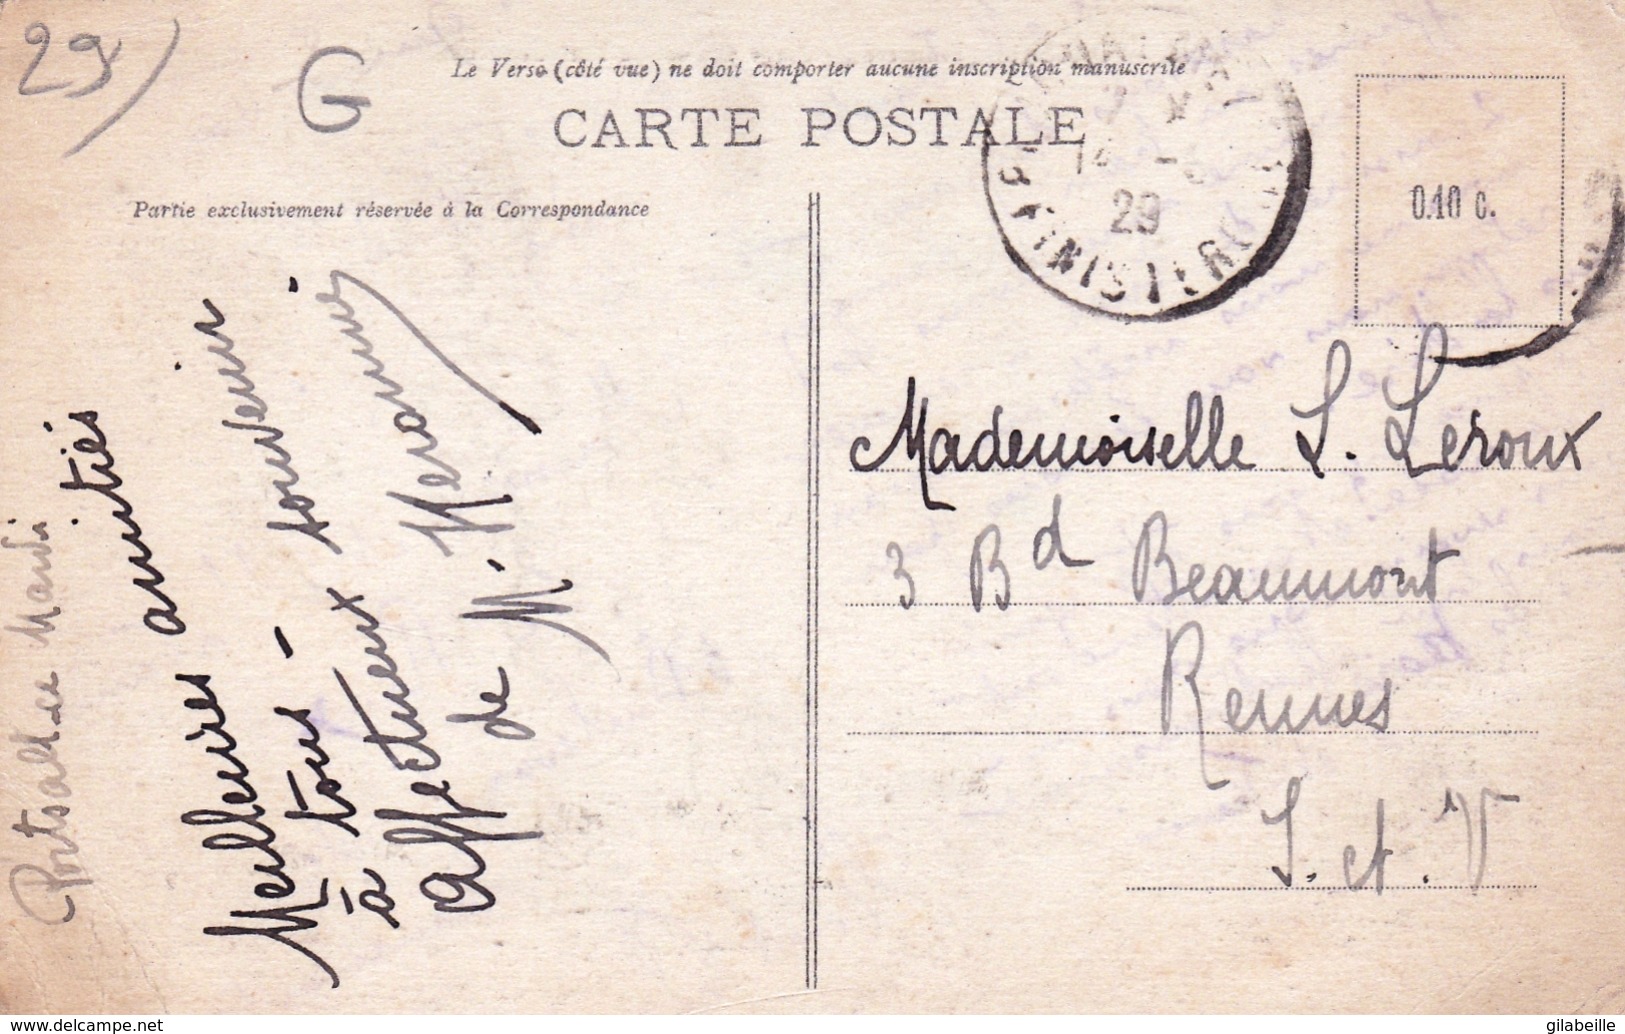 29
G
Le Verso (côté vue) ne doit comporter aucune inscription manuscrite
CARTE POSTALE
Partie exclusivement réservée à la Correspondance
29
FINISTERE
0.10 c.
Mardi
Meilleures amitiés
à tous - souvenir
affectueux
de M.
Mademoiselle L. Leroux
3 Bd Beaumont
Rennes
I. et. V
www.delcampe.net
gilabeille